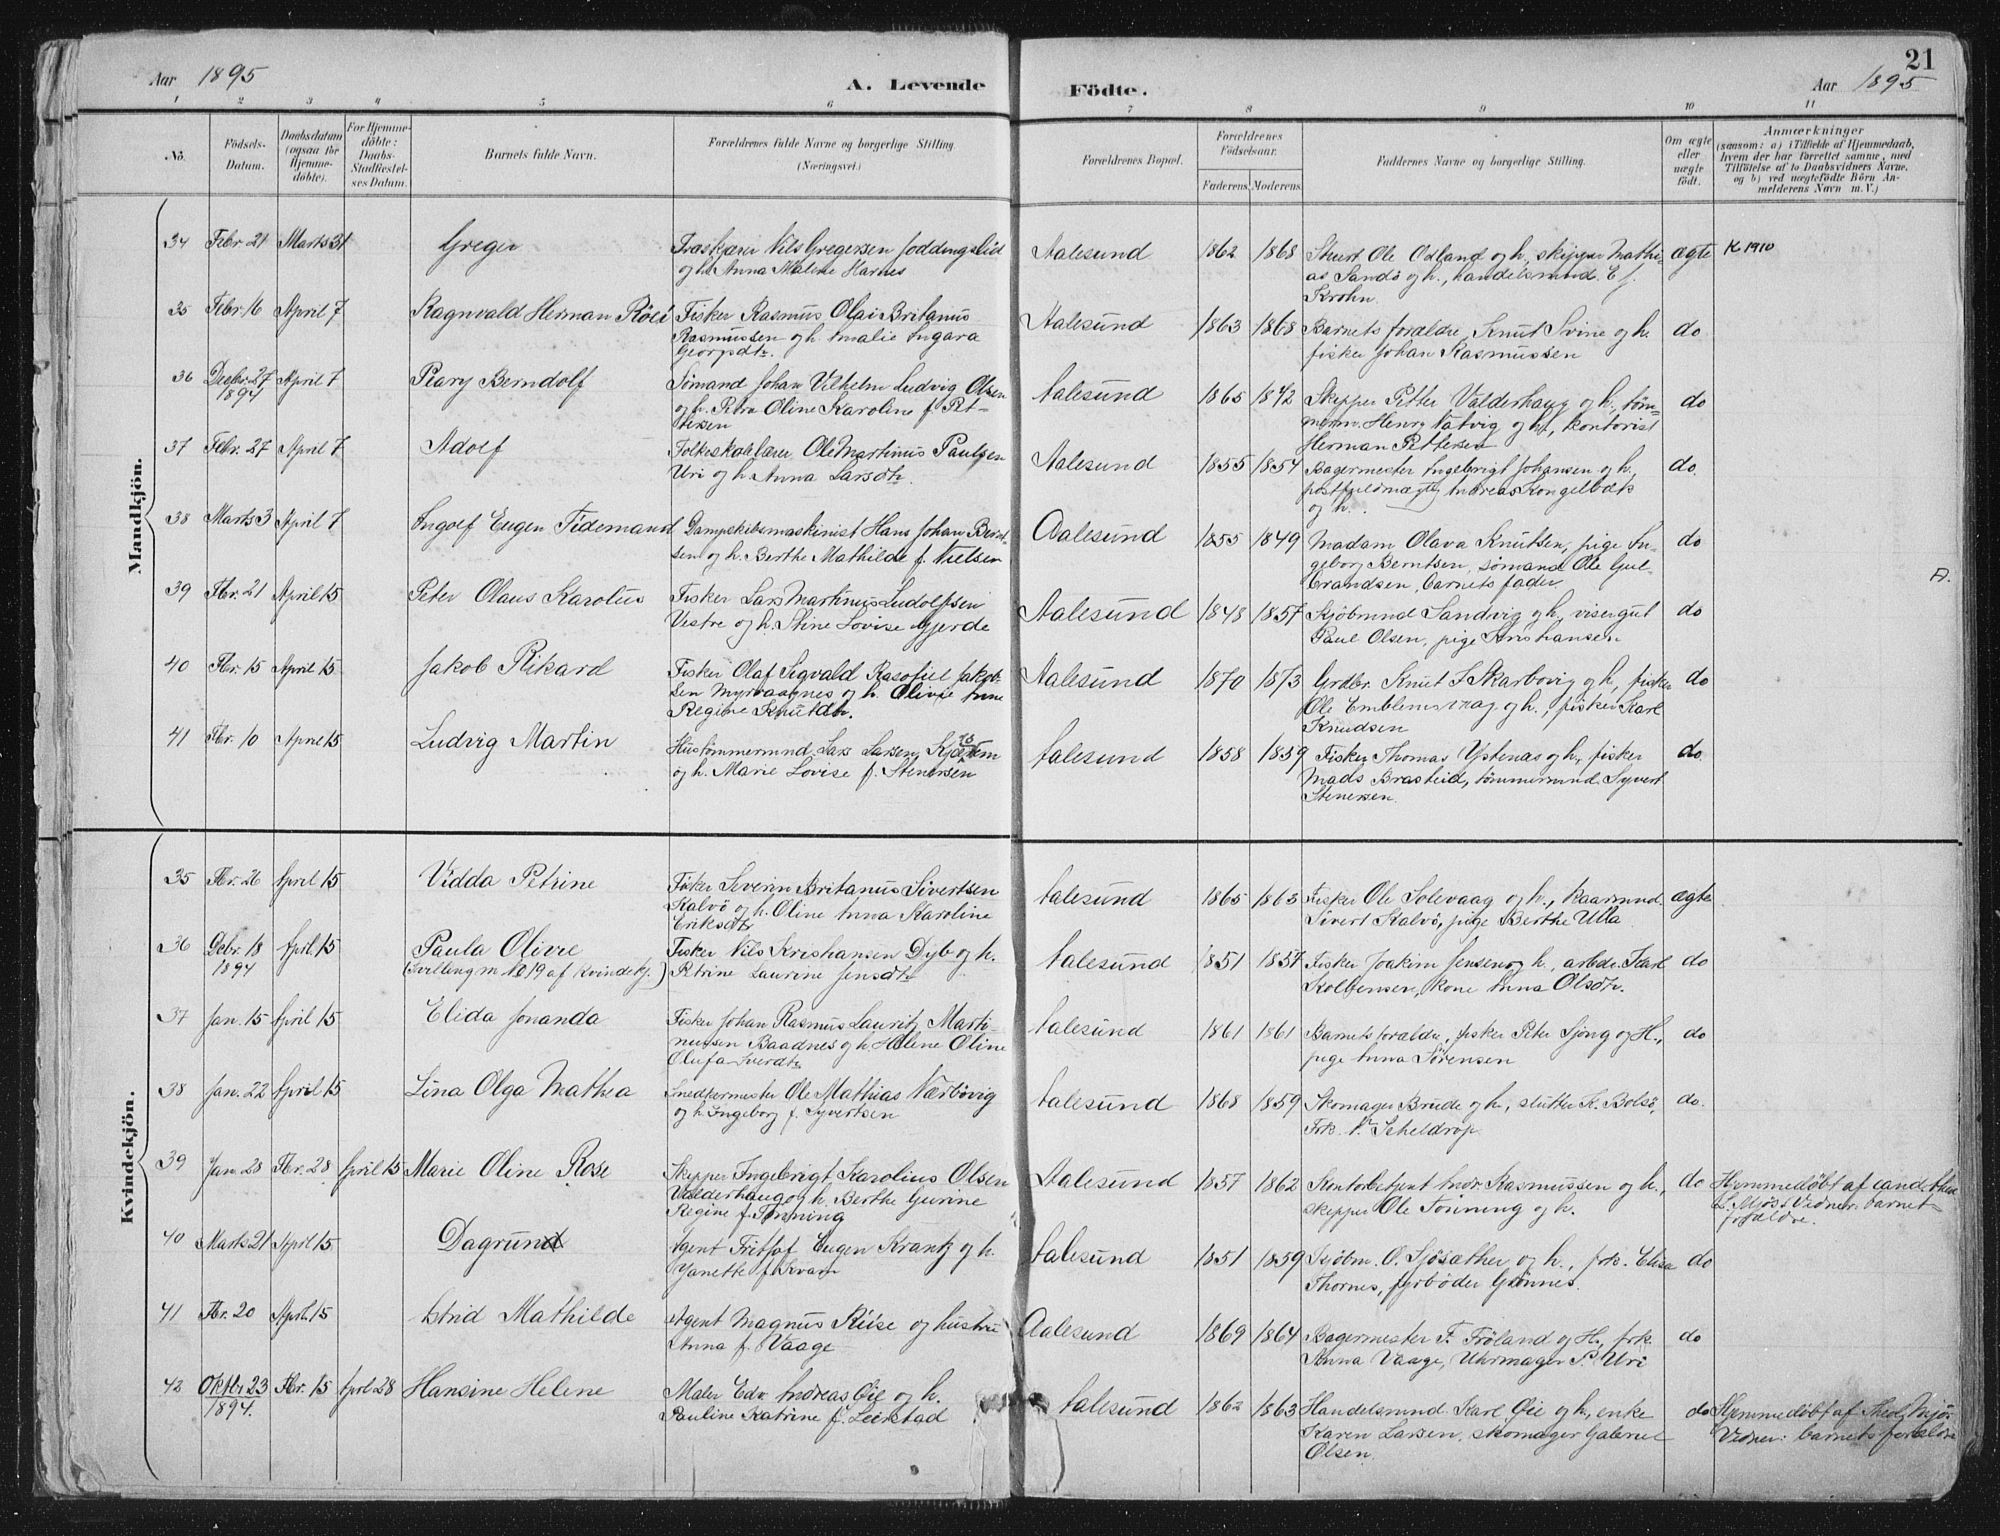 Aar 1895 A. Levende Födte. Aar 1895 21
1 2 3 4 5 6 7 8 9 10 11
No. Födsels-Datum. Daabsdatum (ogsaa for Hjemmedöbte). For Hjemmedöbte: Daabs-Stadfæstelses Datum. Barnets fulde Navn. Forældrenes fulde Navne og borgerlige Stilling (Næringsvei.) Forældrenes Bopæl. Forældrenes Födselsaar. Faderens. Moderens. Faddernes Navne og borgerlige Stilling. Om ægte eller uægte födt. Anmærkninger (saasom: a) i Tilfælde af Hjemmedaab, hvem der har forrettet samme, med Tilföielse af to Daabsvidners Navne. og b) ved uægtefödte Börn Anmelderens Navn m. V.)
Mandkjön.
34 Febr. 21 Marts 31 Greger
Nils Gregersen
og h. Anna Maline Harnes
Aalesund 1862 1868
Stuert Ole Odland og h, skipper Mathi-
as Sandö og h., handelsmnd. E. J.
Krohn.
ægte K 1910
35 Febr. 16 April 7 Ragnvald Herman
Fisker Rasmus Olai Britanus
Rasmussen og h. Amalie Ingara
Georgsdtr.
Aalesund 1863 1868
Barnets forældre, Knut Svine og h.
fisker Johan Rasmussen
do
36 Decbr. 27 1894 April 7 Peary Berndolf
Sömand Johan Vilhelm Ludvig Olsen
og h. Petra Oline Karoline f. Pet-
tersen
Aalesund 1865 1842
Skipper Petter Valderhaug og h., töm-
mermn. Henry Natvig og h., kontorist
Herman Pettersen
do
37 Febr. 27 April 7 Adolf
Folkeskolelærer Ole Martinus Paulsen
Uri og h Anna Larsdtr.
Aalesund 1855 1854
Bagermester Ingebrigt Johansen og h,
postfuldmægtig Andreas Kongelbæk
og h.
do.
38 Marts 3 April 7 Ingolf Eugen Tidemand
Dampskibsmaskinist Hans Johan Bernt-
sen og h. Berthe Mathilde f. Nielsen
Aalesund 1855 1849
Madam Olava Knutsen, pige In-
geborg Berntsen, sömand Ole Gul-
brandsen, barnets fader
do
39 Fbr. 21 April 15 Peter Olaus Karolus
Fisker Lars Martinus Ludolfsen
Vestre og h. Stine Lovise Gjerde
Aalesund 1848 1857
Kjöbmnd Sandvig og h, visergut
Paul Olsen, pige
do
40 Fbr. 15 April 15 Jakob Rikard
Fisker Olaf Sigvald Rasofiel Jakob-
sen Myrvaagnes og h. Olivie Anne
Regine Knutdtr.
Aalesund 1870 1873
Grdbr. Knut J Skarbövig og h, fisker
Ole og h., fisker Karl
Knudsen
do
41 Fbr. 10 April 15 Ludvig Martin
Hustömmermnd. Lars Larsen
og h. Marie Lovise f. Stenersen
Aalesund 1858 1859
Fisker Thomas Ystenæs og h, fisker
Mads Brasteid, tömmermnd. Syvert
Stenersen.
do.
Kvindekjön.
35 Fbr. 26 April 15 Vidda Petrine
Fisker Severin Britanus Sivertsen
Kalvö og h. Oline Anna Karoline
Eriksdtr
Aalesund 1865 1863
Fisker Ole Solevaag og h., kaarmnd.
Sivert Kalvö, pige Berthe Ulla
ægte
36 Decbr. 18 1894 April 15 Paula Olivie
(Tvilling m No 19 af kvindekj.)
Fisker Nils Kristiansen Dyb og h.
Petrine Laurine Jensdtr
Aalesund 1851 1857
Fisker Joakim Jensen og h., arbdr. Karl
Kolbensen, kone Anna Olsdtr.
do
37 Jan. 15 April 15 Elida Jonanda
Fisker Johan Rasmus Lauritz Marti-
nussen Baadnes og h. Helene Oline
Olufa Iverdtr
Aalesund 1861 1861
Barnets forældre, fisker Peter Sjong og H.,
pige Anna Sörensen
do
38 Jan. 22 April 15 Lina Olga Mathea
Snedkermester Ole Mathias Nærbövig
og h. Ingeborg f. Syvertsen
Aalesund 1868 1859
Skomager Brude og h, slutter K. Bolsö,
Frk. Scheldrop.
do.
39 Jan. 28 Fbr. 28 April 15 Marie Oline Rose
Skipper Ingebrigt Karolius Olsen
Valderhaug og h. Berthe Gurine
Regine f. Tönning
Aalesund 1857 1862
Kontorbetjent Andr. Rasmussen og h.,
skipper Ole Tönning og h.
do
Hjemmedöbt af cand. theol
L. Mjös. Vidner: barnets
forældre.
40 Marts 21 April 15 Dagrun
Agent Fritjof Eugen Krantz og h.
Janette f. Kvam
Aalesund 1851 1859
Kjöbm. O. Sjösæther og h., frk. Elisa
Thornes, fyrböder Grönnes.
do
41 Fbr. 20 April 15 Astrid Mathilde
Agent Magnus Riise og hustru
Anna f. Vaage
Aalesund 1869 1864
Bagermester F. Fröland og H., frk.
Anna Vaage, Uhrmager P. Uri
do
42 Oktbr. 23 1894. Fbr. 15 April 28 Hansine Helene
Maler Edv. Andreas Öie og h.
Pauline Katrine f. Leirstad
Aalesund 1862 1863
Handelsmnd. Karl Öie og h., enke
Karen Larsen, skomager Gabriel
Olsen.
do
Hjemmedöbt af Theol. Mjös
Vidner: barnets forældre